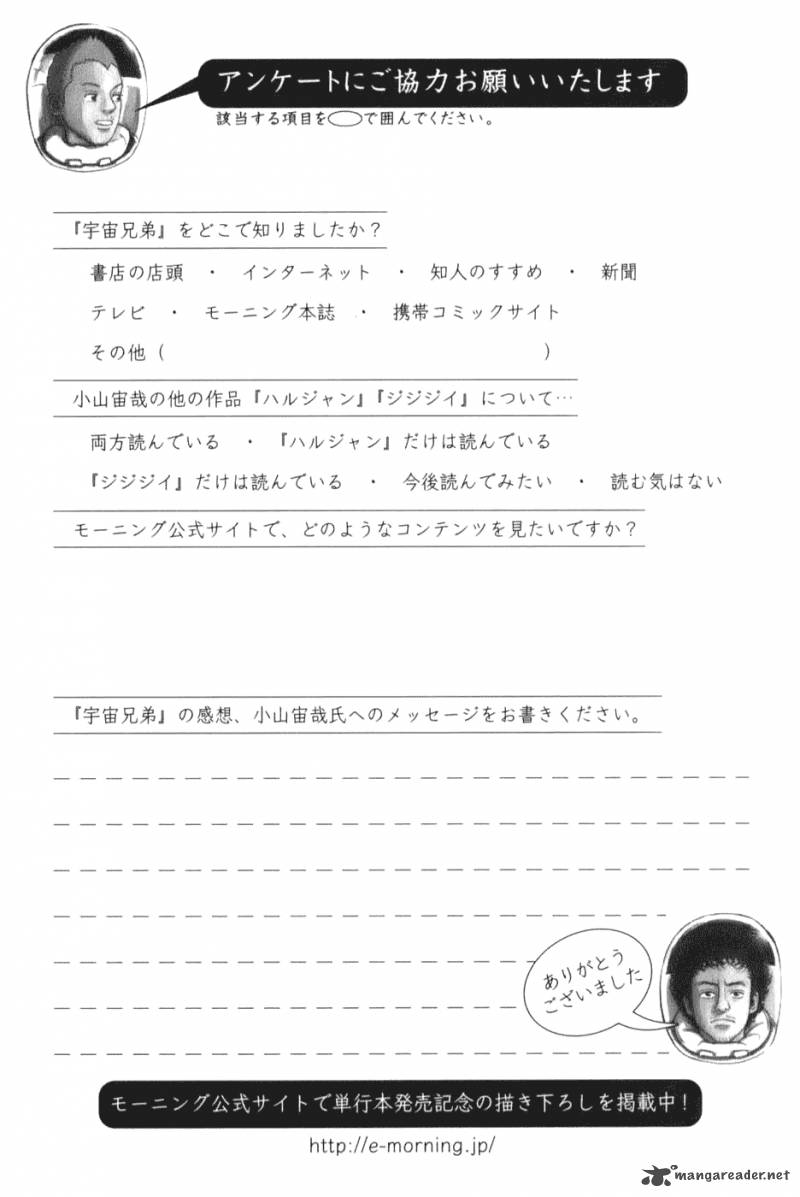 アンケートにご協力お願いいたします
該当する項目を◯で囲んでください。
『宇宙兄弟』をどこで知りましたか？
書店の店頭 ・ インターネット ・ 知人のすすめ ・ 新聞
テレビ ・ モーニング本誌 ・ 携帯コミックサイト
その他（ ）
小山宙哉の他の作品『ハルジャン』『ジジジイ』について…
両方読んでいる ・ 『ハルジャン』だけは読んでいる
『ジジジイ』だけは読んでいる ・ 今後読んでみたい ・ 読む気はない
モーニング公式サイトで、どのようなコンテンツを見たいですか？
『宇宙兄弟』の感想、小山宙哉氏へのメッセージをお書きください。
ありがとう
ございました
モーニング公式サイトで単行本発売記念の描き下ろしを掲載中！
http://e-morning.jp/
mangareader.net